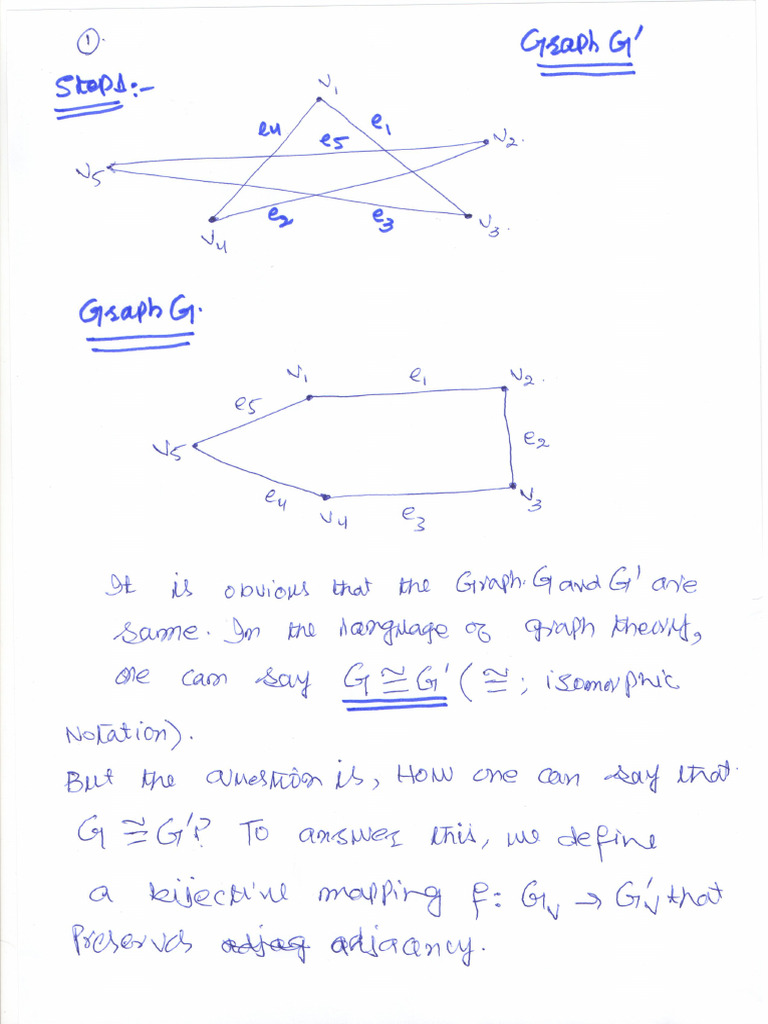 ①.
Graph G'
Step1:-
v1
e4
e5
e1
v2.
v5
e2
e3
v4
v3.
Graph G.
v1
e1
v2.
e5
v5
e2
e4
v4
e3
v3
It is obvious that the Graph G and G' are
same. In the language of graph theory,
one can say G ≅ G' (≅; isomorphic
Notation).
But the question is, How one can say that
G ≅ G'? To answer this, we define
a bijective mapping f: Gv → G'v that
Preserves adjacency.